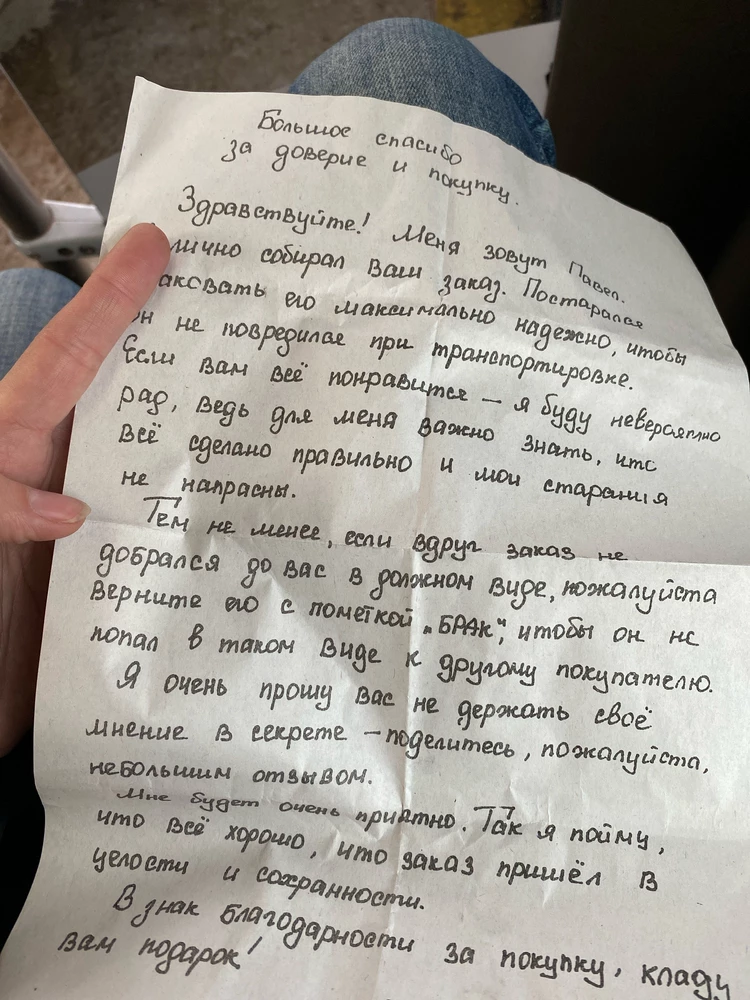 Большое спасибо
за доверие и покупку.
Здравствуйте! Меня зовут Павел.
лично собирал ваш заказ. Постарался
аковать его максимально надежно, чтобы
он не повредился при транспортировке.
Если вам всё понравится — я буду невероятно
рад, ведь для меня важно знать, что
всё сделано правильно и мои старания
не напрасны.
Тем не менее, если вдруг заказ не
добрался до вас в должном виде, пожалуйста
верните его с пометкой „БРАК“, чтобы он не
попал в таком виде к другому покупателю.
Я очень прошу вас не держать своё
мнение в секрете – поделитесь, пожалуйста,
небольшим отзывом.
Мне будет очень приятно. Так я пойму,
что всё хорошо, что заказ пришёл в
целости и сохранности.
В знак благодарности за покупку, кладу
вам подарок!